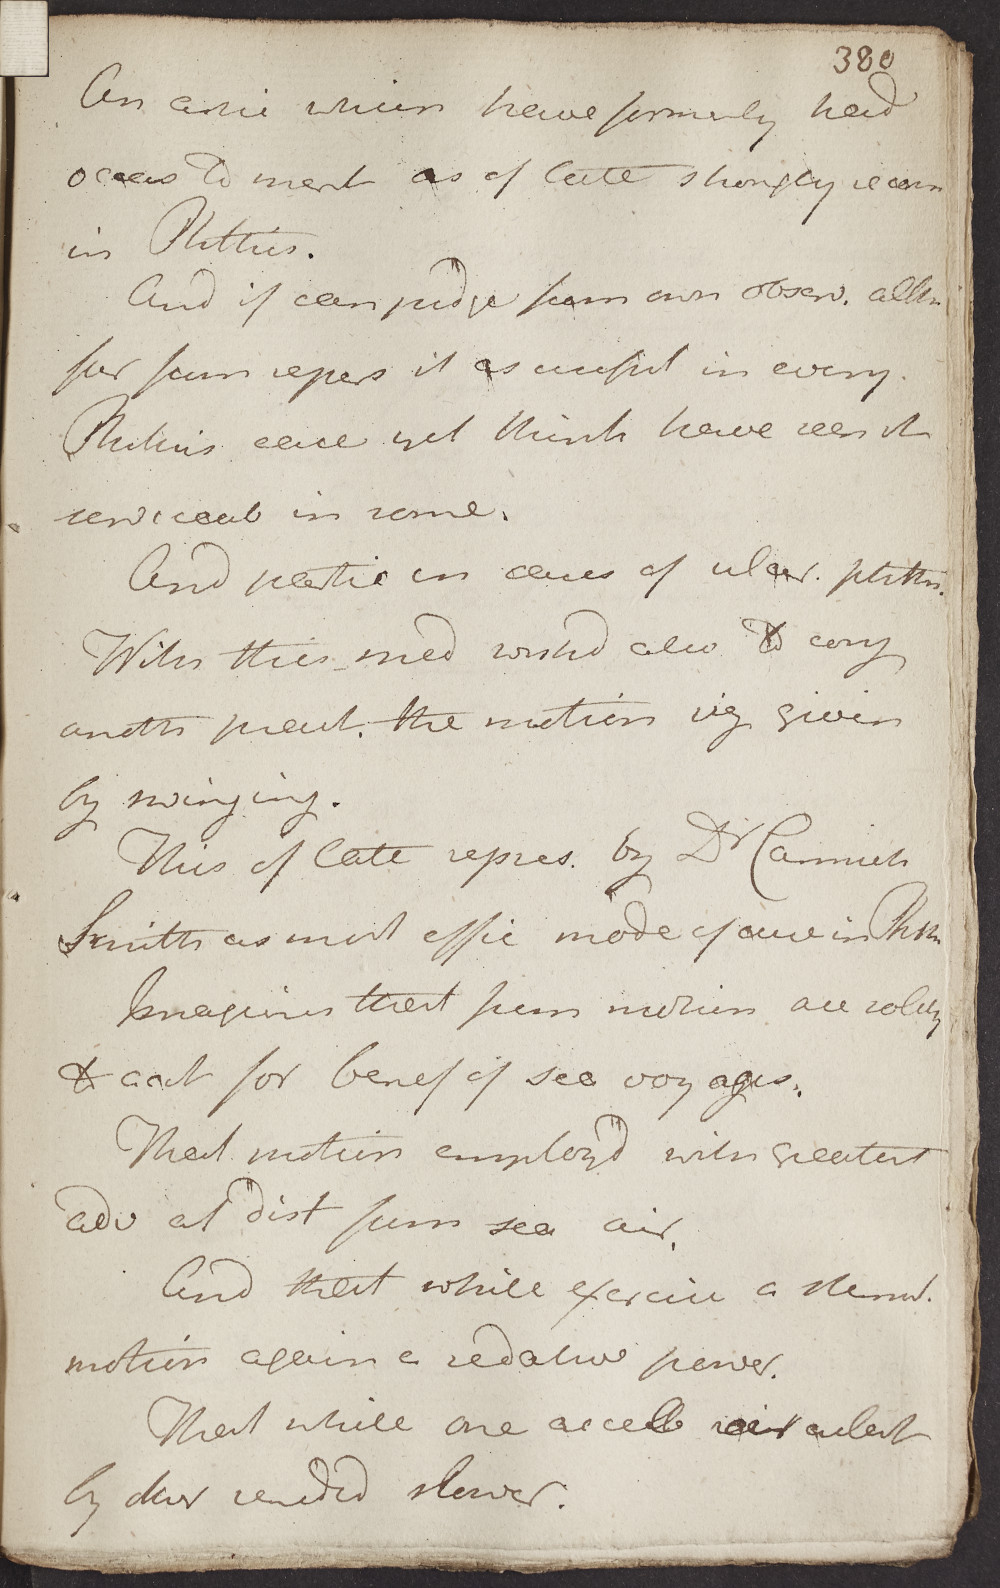 380
An artic which have formerly had
occas to ment as of late strongly recom
in Phthis.
And if can judge from own observ. altho
far from repres it as useful in every
Phthis case yet think have seen it
serviceab in some.
And partic in cases of ulcer. phthis.
With this med wishd also to conj
anoth pract. the motion viz given
by swinging.
This of late repres. by Dr Carmich
Smith as most effic mode of cure in Phth
Imagines that from motion are solely
to acct for benef of sea voyages.
That motion employd with greatest
adv at dist from sea air.
And that while exercise a stimul.
motion again a sedative power.
That while one accel circulat
by other rendrd slower.